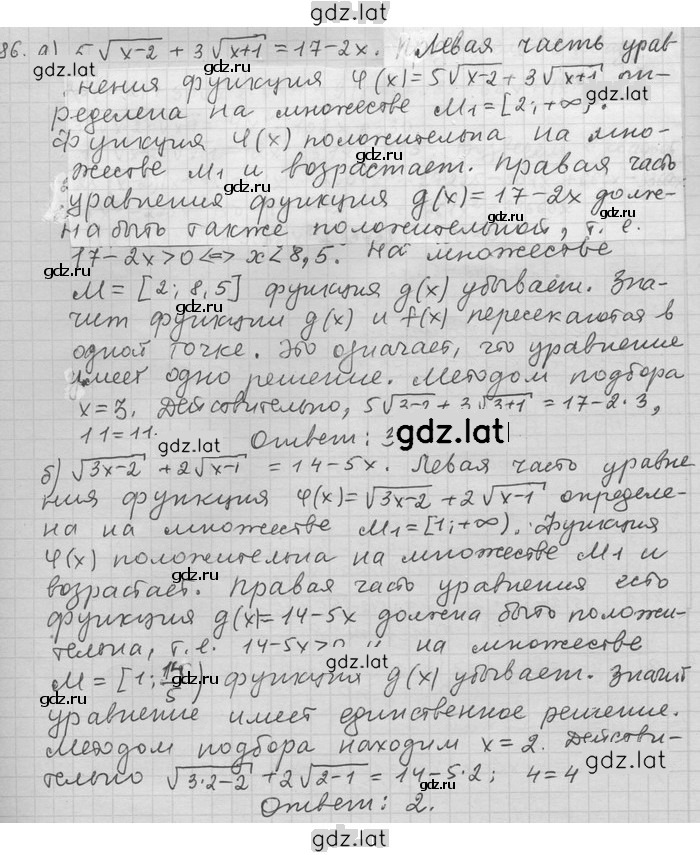 gdz.latl
86. а) 5√x-2 + 3√x+1 = 17-2x. Левая часть урав
нения функция φ(x)=5√x-2+3√x+1 оп-
ределена на множестве M1=[2;+∞).
Функция φ(x) положительна на мно-
жестве M1 и возрастает. Правая часть
уравнения функция g(x)=17-2x долж-
на быть также положительной, т. е.
17-2x>0 <=> x<8,5. На множестве
M=[2; 8,5] функция g(x) убывает. Зна-
чит функции g(x) и f(x) пересекаются в
одной точке. Это означает, что уравнение
имеет одно решение. Методом подбора
x=3. Действительно, 5√3-2 + 3√3+1 = 17-2·3,
11=11. Ответ: 3
б) √3x-2 + 2√x-1 = 14-5x. Левая часть уравне
ния функция φ(x)=√3x-2 + 2√x-1 определе-
на на множестве M1=[1;+∞). Функция
φ(x) положительна на множестве M1 и
возрастает. Правая часть уравнения есть
функция g(x)=14-5x должна быть положи-
тельна, т. е. 14-5x>0 и на множестве
M=[1; 14/5) функция g(x) убывает. Значит
уравнение имеет единственное решение.
Методом подбора находим x=2. Действи-
тельно √3·2-2 + 2√2-1 = 14-5·2; 4=4
Ответ: 2.
gdz.latl
gdz.ru
gdz.latl
gdz.ru
gdz.ru
gdz.ru
gdz.latl
gdz.latl
gdz.ru
gdz.latl
gdz.ru
gdz.latl
gdz.ru
gdz.latl
gdz.ru
gdz.latl
gdz.latl